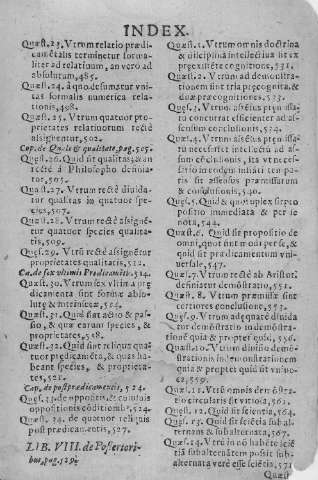 INDEX.
Quæst. 23. Vtrum relatio prædi-
camẽtalis terminetur forma-
liter ad relatiuum, an vero ad
absolutum, 485.
Quæst. 24. à quo desumatur vni-
tas formalis numerica rela-
tionis, 498.
Quæst. 25. Vtrum quatuor pro-
prietates relatiuorum rectè
assignentur, 502.
Cap. de Quale & qualitate, pag. 505.
Quæst. 26. Quid sit qualitas, & an
rectè à Philosopho
505.
Quæst. 27. Vtrum rectè diuida-
tur qualitas in quatuor spe-
cies, 507.
Quæst. 28. Vtrum rectè assignẽ-
tur quatuor species qualita-
tis, 509.
Quæs. 29. Vtrũ rectè assignẽtur
proprietates qualitatis, 512.
Ca. de sex vltimis Prædicamẽtis, 514.
Quæst. 30. Vtrum sex vltima præ
dicamenta sint formæ absolu-
tæ & intrinsecæ, 514.
Quæst. 31. Quid sint actio & pas-
sio, & quæ earum species, &
proprietates, 518.
Quæst. 32. Quid sint reliqua qua-
tuor prædicamẽta, & quas ha-
beant species, & proprieta-
tes, 521.
Cap. de postprædicamentis, 524.
Quæs. 33. de oppositis, &
oppositionis cõditionib. 524.
Quæs. 34. de quatuor reliquis
post prædicamentis, 527.
LIB. VIII. de Posteriori-
bus, pag. 529.
Quæst. 1. Vtrum omnis doctrina
& disciplina intellectiua fit ex
præexistẽte cognitione, 531.
Quæst. 2. Vtrum ad demonstra-
tionem sint tria præcognita, &
duæ præcognitiones, 533.
Quæs. 3. Vtrum assensus præmissa
rũ concurrat efficienter ad as-
sensum conclusionis, 534.
Quæst. 4. Vtrum assensus præmissa
rũ necessitet intellectũ ad as-
sum cõclusionis, ita vt necessa
rio in eodem instanti tem po-
ris sit assensus præmissarum
& conclusionis, 540.
Quæs. 5. Quid & quotuplex sit pro
positio immediata & per se
nota, 544.
Quæst. 6. Quid sit propositio de
omni, quot sint modi per se, &
quid sit prædicamentum vni-
uersale, 547.
Quæs. 7. Vtrum rectè ab Aristot.
definiatur demonstratio, 551.
Quæs. 8. Vtrum præmissæ sint
certiores conclusione, 553.
Quæs. 9. Vtrum adæquatè diuida
tur demõstratio in demõstra-
tionẽ quia & propter quid, 556.
Quæs. 10. Vtrum diuisio demõ-
strationis in demonstrationem
quia & propter quid sit vniuo-
ca, 559.
Quæs. 11. Vtrum omnis demõstra-
tio circularis sit vitiosa, 562.
Quæst. 12. Quid sit scientia, 564.
Quæst. 13. Quid sit sciẽtia subal-
ternans & subalternata, 567.
Quæs. 14. Vtrũ in nõ habẽte sciẽ
tiã subalternãtem possit subal-
ternata verè esse sciẽtia, 571
Quæst